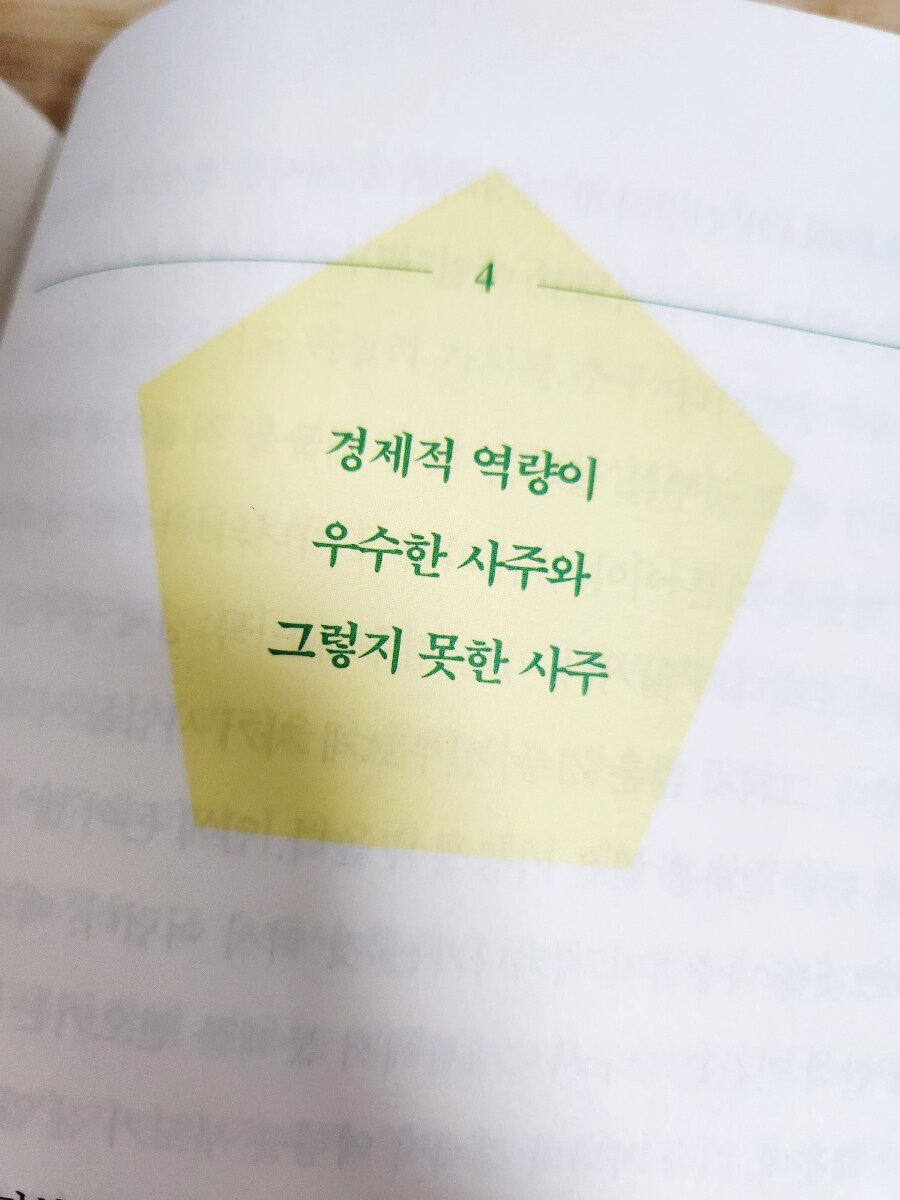 4
경제적 역량이
우수한 사주와
그렇지 못한 사주